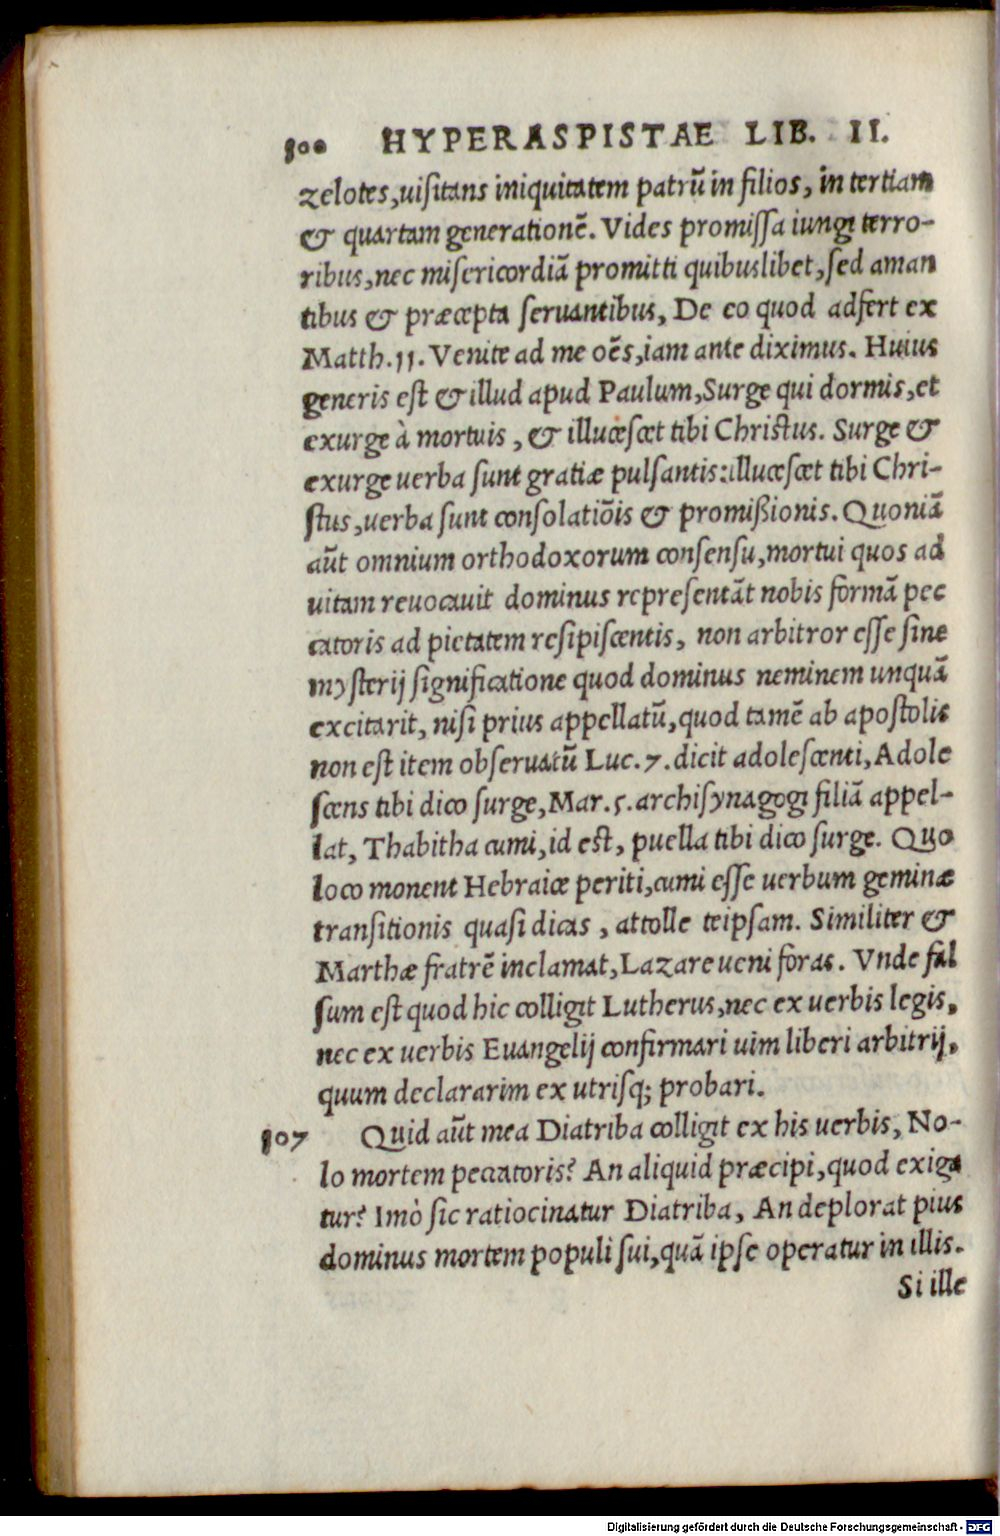 500 HYPERASPISTAE LIB. II.
zelotes, uisitans iniquitatem patrũ in filios, in tertiam
& quartam generationẽ. Vides promissa iungi terro-
ribus, nec misericordiã promitti quibuslibet, sed aman
tibus & præcepta seruantibus, De eo quod adfert ex
Matth. 11. Venite ad me oẽs, iam ante diximus. Huius
generis est & illud apud Paulum, Surge qui dormis, et
exurge à mortuis, & illucescet tibi Christus. Surge &
exurge uerba sunt gratiæ pulsantis: illucescet tibi Chri-
stus, uerba sunt consolatiõis & promißionis. Quoniã
aũt omnium orthodoxorum consensu, mortui quos ad
uitam reuocauit dominus representãt nobis formã pec
catoris ad pietatem resipiscentis, non arbitror esse sine
mysterij significatione quod dominus neminem unquã
excitarit, nisi prius appellatũ, quod tamẽ ab apostolis
non est item obseruatũ Luc. 7. dicit adolescenti, Adole
scens tibi dico surge, Mar. 5. archisynagogi filiã appel-
lat, Thabitha cumi, id est, puella tibi dico surge. Quo
loco monent Hebraice periti, cumi esse uerbum geminæ
transitionis quasi dicas, attolle teipsam. Similiter &
Marthæ fratrẽ inclamat, Lazare ueni foras. Vnde fal
sum est quod hic colligit Lutherus, nec ex uerbis legis,
nec ex uerbis Euangelij confirmari uim liberi arbitrij,
quum declararim ex utrisq; probari.
507 Quid aũt mea Diatriba colligit ex his uerbis, No-
lo mortem peccatoris? An aliquid præcipi, quod exiga
tur? Imò sic ratiocinatur Diatriba, An deplorat pius
dominus mortem populi sui, quã ipse operatur in illis.
Si ille
Digitalisierung gefördert durch die Deutsche Forschungsgemeinschaft - DFG